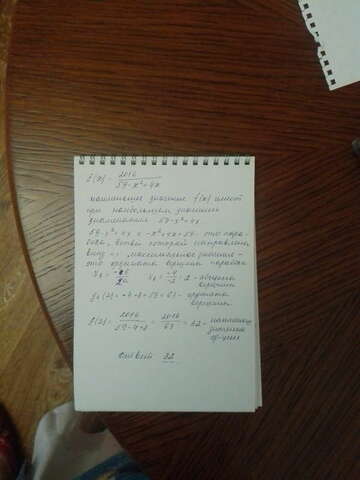 f(x) = 2016 / 59-x²+4x
наименьшее значение f(x) имеет
при наибольшем значении
знаменателя 59-x²+4x
59-x²+4x = -x²+4x+59 - это пара-
бола, ветви которой направлены
вниз -, максимальное значение -
это ордината вершины параболы
x₀ = -b / 2a x₀ = -4 / -2 = 2 - абсцисса
вершины
y₀(2) = -4+8+59 = 63 - ордината
вершины
f(2) = 2016 / 59-4+8 = 2016 / 63 = 32 - наименьшее
значение
ф-ции
Ответ 32